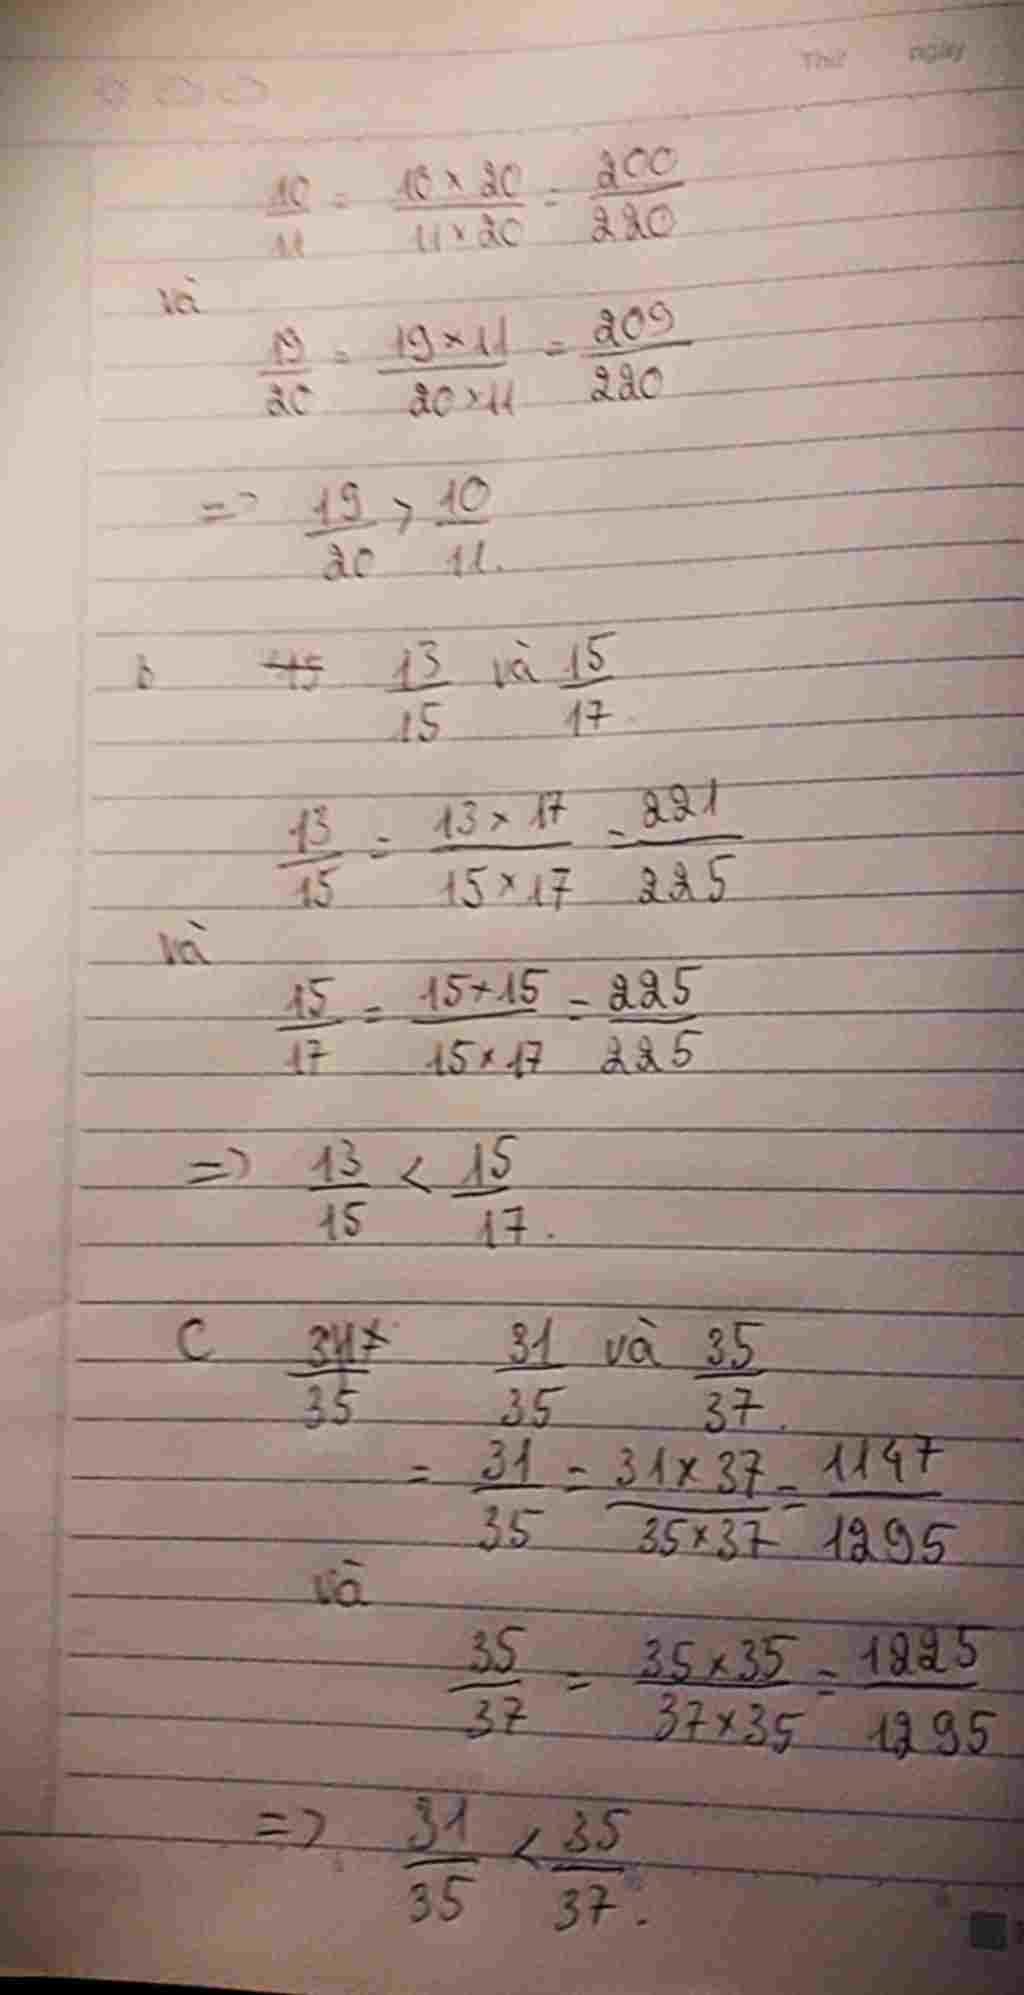 Thứ ngày
10/11 = 10 × 20/11 × 20 = 200/220
và
19/20 = 19 × 11/20 × 11 = 209/220
=> 19/20 > 10/11.
b 15 13/15 và 15/17.
13/15 = 13 × 17/15 × 17 = 221/225
và
15/17 = 15 + 15/15 × 17 = 225/225
=> 13/15 < 15/17.
C 35 31/35 và 35/37.
= 31/35 = 31 × 37/35 × 37 = 1147/1295
và
35/37 = 35 × 35/37 × 35 = 1225/1295
=> 31/35 < 35/37.